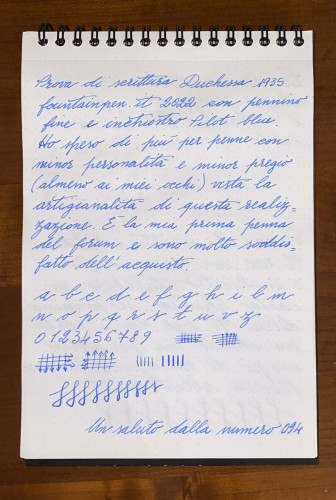 Prova di scrittura Duchessa 1935
fountainpen.it 2022 con pennino
fine e inchiostro Pilot blue.
Ho speso di più per penne con
minor personalità e minor pregio
(almeno ai miei occhi) vista la
artigianalità di questa realiz=
zazione. È la mia prima penna
del forum e sono molto soddis=
fatto dell'acquisto.
a b c d e f g h i l m
n o p q r s t u v z
0 1 2 3 4 5 6 7 8 9
Un saluto dalla numero 094